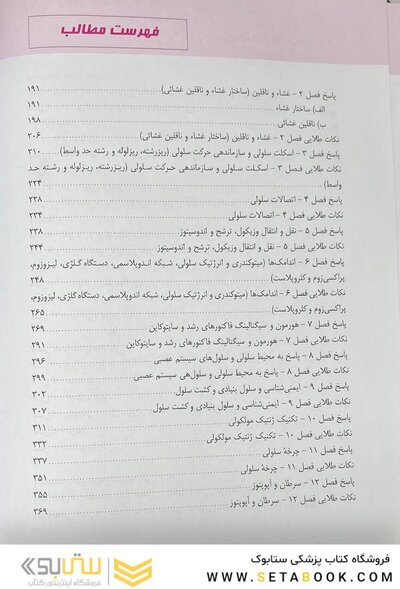 فهرست مطالب
پاسخ فصل ۲ - غشاء و ناقلین (ساختار غشاء و ناقلین غشائی) ۱۹۱
الف) ساختار غشاء ۱۹۱
ب) ناقلین غشائی ۱۹۸
نکات طلایی فصل ۲ - غشاء و ناقلین (ساختار غشاء و ناقلین غشائی) ۲۰۶
پاسخ فصل ۳ - اسکلت سلولی و سازماندهی حرکت سلولی (ریزرشته، ریزلوله و رشته حد واسط) ۲۱۰
نکات طلایی فصل ۳ - اسکلت سلولی و سازماندهی حرکت سلولی (ریزرشته، ریزلوله و رشته حد
واسط) ۲۲۴
پاسخ فصل ۴ - اتصالات سلولی ۲۲۸
نکات طلایی فصل ۴ - اتصالات سلولی ۲۳۴
پاسخ فصل ۵ - نقل و انتقال وزیکول، ترشح و اندوسیتوز ۲۳۸
نکات طلایی فصل ۵ - نقل و انتقال وزیکول، ترشح و اندوسیتوز ۲۴۴
پاسخ فصل ۶ - اندامک‌ها (میتوکندری و انرژتیک سلولی، شبکه اندوپلاسمی، دستگاه گلژی، لیزوزوم،
پراکسی‌زوم و کلروپلاست) ۲۴۸
نکات طلایی فصل ۶ - اندامک‌ها (میتوکندری و انرژتیک سلولی، شبکه اندوپلاسمی، دستگاه گلژی، لیزوزوم،
پراکسی‌زوم و کلروپلاست) ۲۶۵
پاسخ فصل ۷ - هورمون و سیگنالینگ فاکتورهای رشد و سایتوکاین ۲۶۹
نکات طلایی فصل ۷ - هورمون و سیگنالینگ فاکتورهای رشد و سایتوکاین ۲۹۰
پاسخ فصل ۸ - پاسخ به محیط سلولی و سلول‌های سیستم عصبی ۲۹۶
نکات طلایی فصل ۸ - پاسخ به محیط سلولی و سلول‌هی سیستم عصبی ۲۹۹
پاسخ فصل ۹ - ایمنی‌شناسی و سلول بنیادی و کشت سلول ۳۰۲
نکات طلایی فصل ۹ - ایمنی‌شناسی و سلول بنیادی و کشت سلول ۳۰۷
پاسخ فصل ۱۰ - تکنیک ژنتیک مولکولی ۳۱۱
نکات طلایی فصل ۱۰ - تکنیک ژنتیک مولکولی ۳۳۲
پاسخ فصل ۱۱ - چرخهٔ سلولی ۳۳۷
نکات طلایی فصل ۱۱ - چرخهٔ سلولی ۳۵۱
پاسخ فصل ۱۲ - سرطان و آپوپتوز ۳۵۵
نکات طلایی فصل ۱۲ - سرطان و آپوپتوز ۳۶۹
فروشگاه کتاب پزشکی ستابوک
WWW.SETABOOK.COM
فروشگاه اینترنتی کتاب